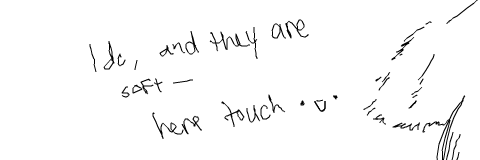 I do, and they are
soft —
here touch •▽•